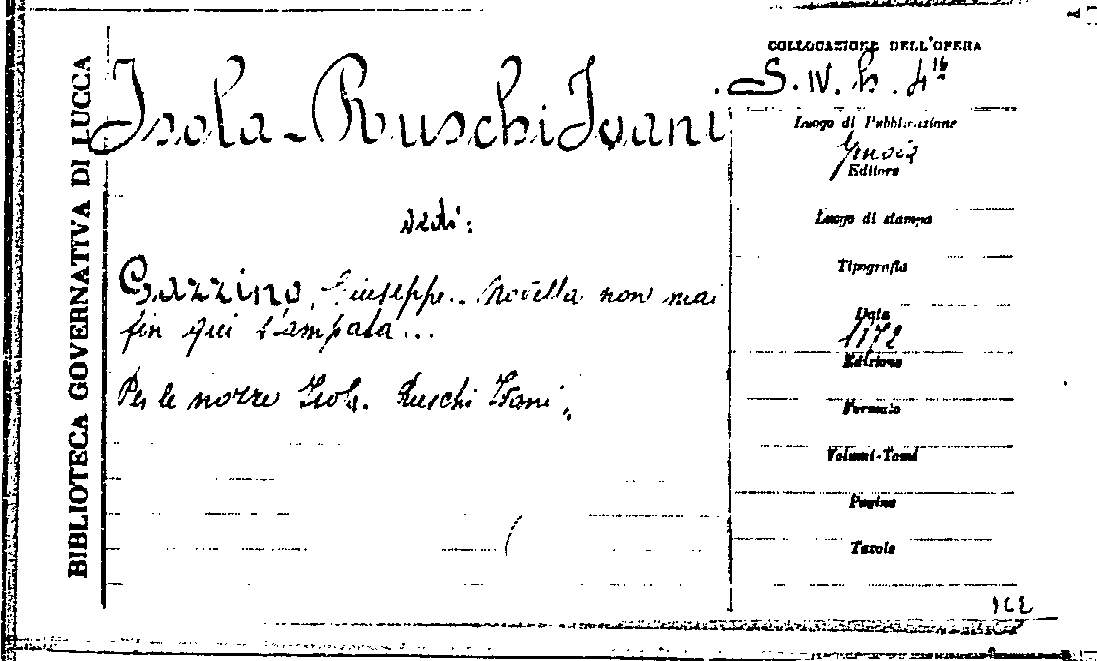 BIBLIOTECA GOVERNATIVA DI LUCCA
Isola-Ruschi Ivani
vedi:
Gazzino, Giuseppe.. Novella non mai
fin qui stampata...
Per le nozze Isola. Ruschi Ivani.
COLLOCAZIONE DELL'OPERA
S. IV. h. 4
Luogo di Pubblicazione
Genova
Editore
Luogo di stampa
Tipografia
Data
1872
Edizione
Formato
Volumi-Tomi
Pagine
Tavole